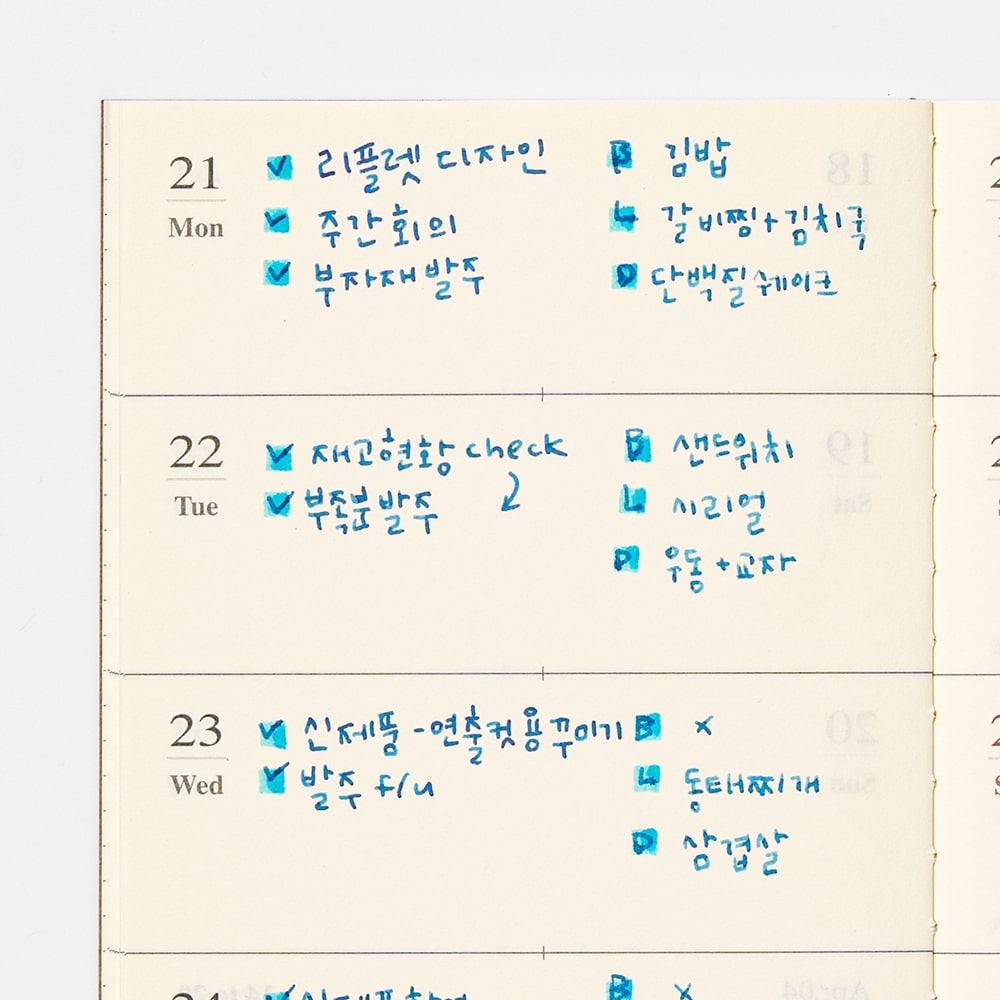 21
Mon
리플렛 디자인
주간회의
부자재발주
B 김밥
L 갈비찜+김치국
D 단백질쉐이크
22
Tue
재고현황 check
부족분발주
B 샌드위치
L 시리얼
D 우동+교자
23
Wed
신제품-연출컷용 꾸미기
발주 f/u
B ×
L 동태찌개
D 삼겹살
24
B ×